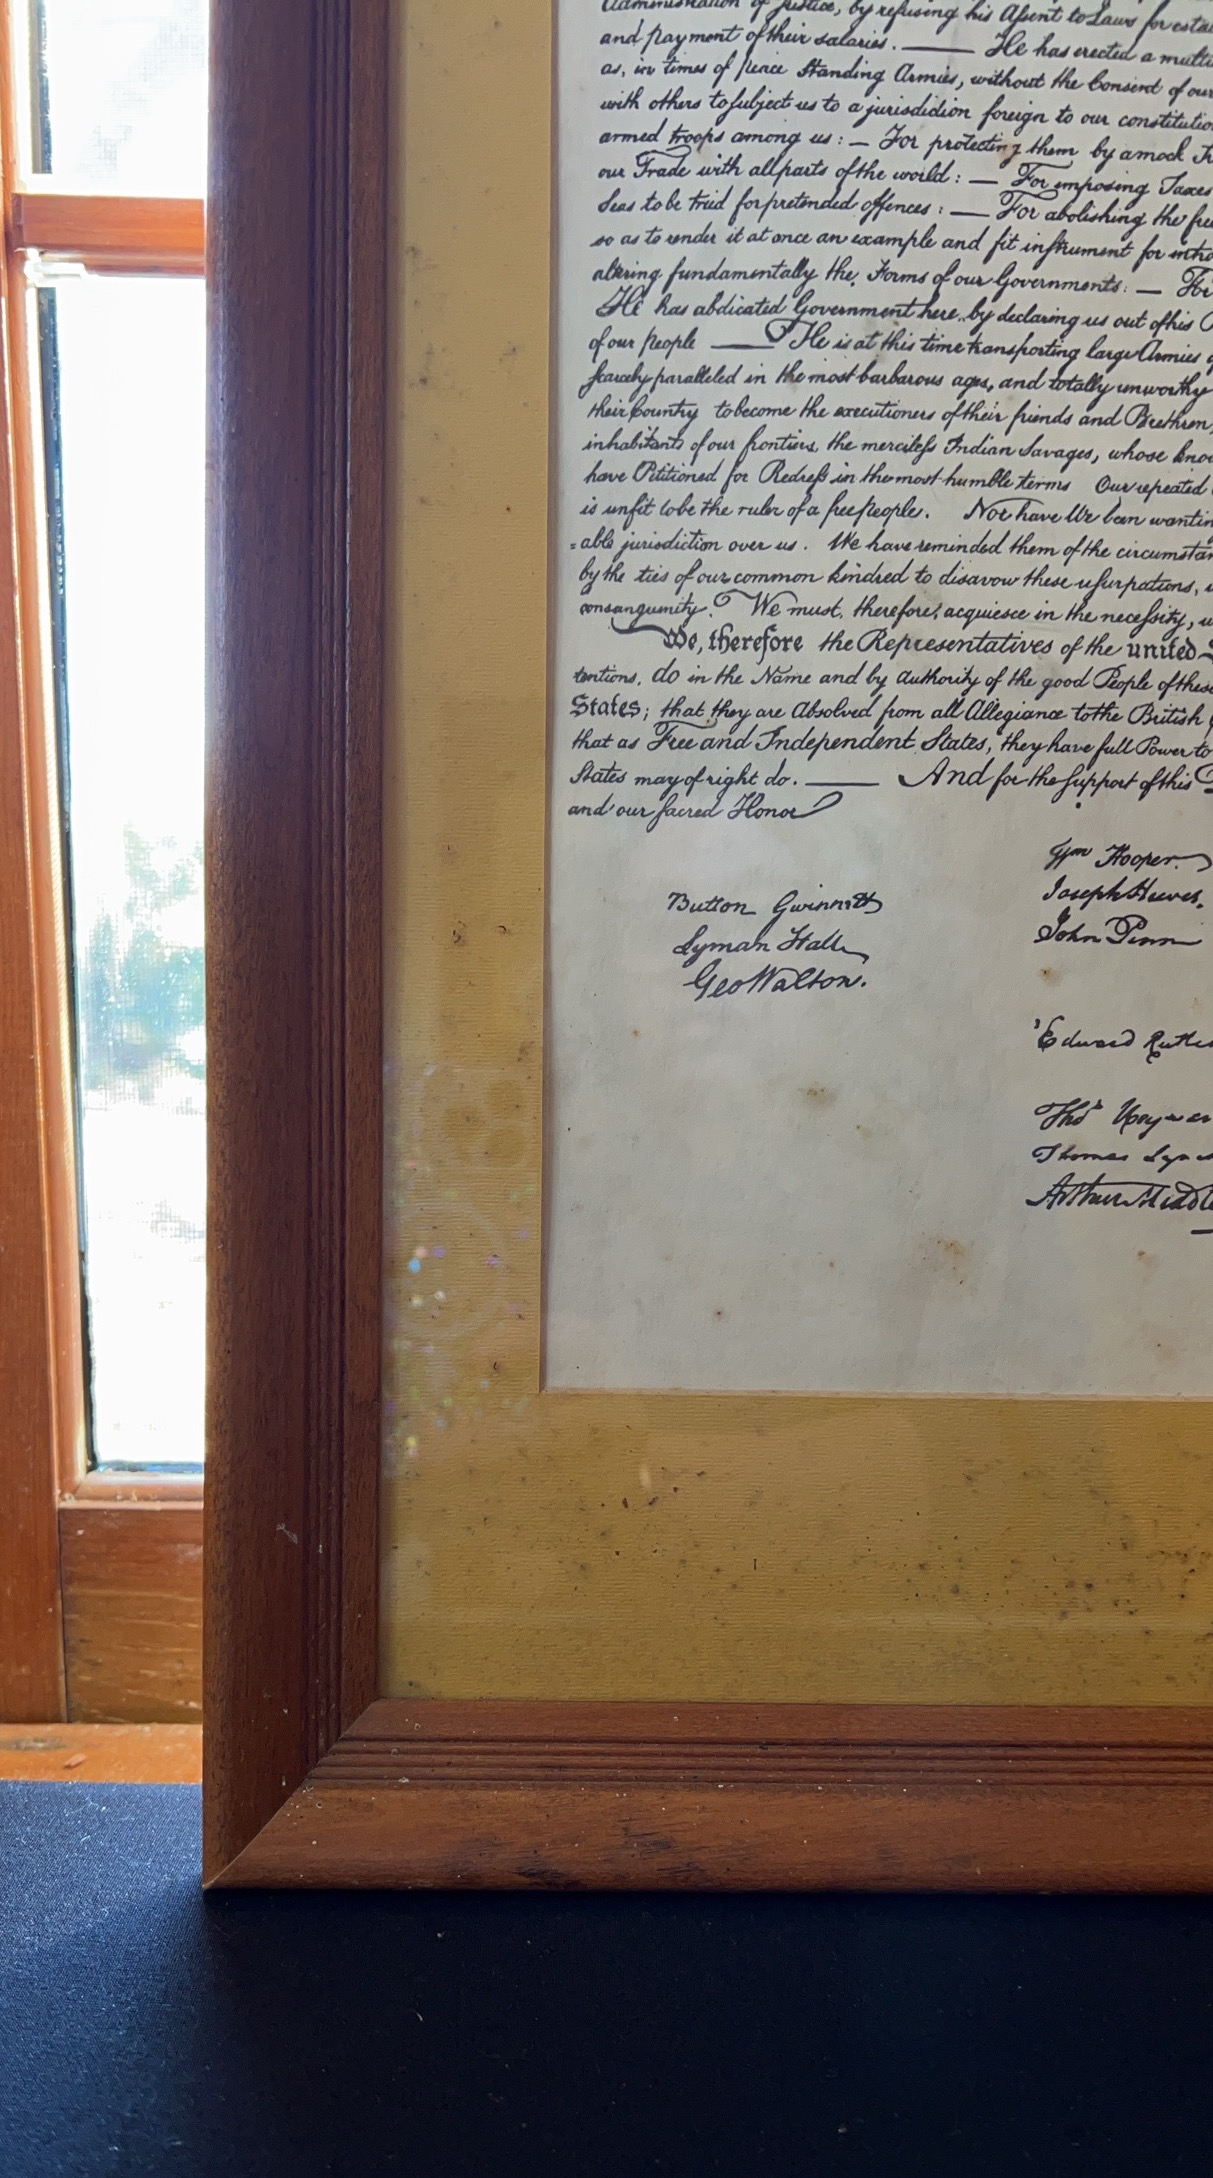 Administration of Justice, by refusing his Assent to Laws for esta
and payment of their salaries. — He has erected a multi
as, in times of peace Standing Armies, without the Consent of our
with others to subject us to a jurisdiction foreign to our constitutio
armed troops among us: — For protecting them by a mock Tr
our Trade with all parts of the world: — For imposing Taxes
Seas to be tried for pretended offences: — For abolishing the free
so as to render it at once an example and fit instrument for intro
altering fundamentally the Forms of our Governments: — For
He has abdicated Government here, by declaring us out of his
of our people — He is at this time transporting large Armies o
scarcely paralleled in the most barbarous ages, and totally unworthy
their Country to become the executioners of their friends and Brethren,
inhabitants of our frontiers, the merciless Indian Savages, whose know
have Petitioned for Redress in the most humble terms Our repeated
is unfit to be the ruler of a free people. Nor have We been wantin
=able jurisdiction over us. We have reminded them of the circumstan
by the ties of our common kindred to disavow these usurpations,
consanguinity. We must, therefore, acquiesce in the necessity, w
We, therefore the Representatives of the united
tentions, do in the Name and by authority of the good People of these
States; that they are Absolved from all Allegiance to the British
that as Free and Independent States, they have full Power to
States may of right do. — And for the support of this D
and our sacred Honor
Wm Hooper
Button Gwinnett
Joseph Hewes,
Lyman Hall
John Penn
Geo Walton.
Edward Rutle
Thos Heywar
Thomas Lync
Arthur Middle